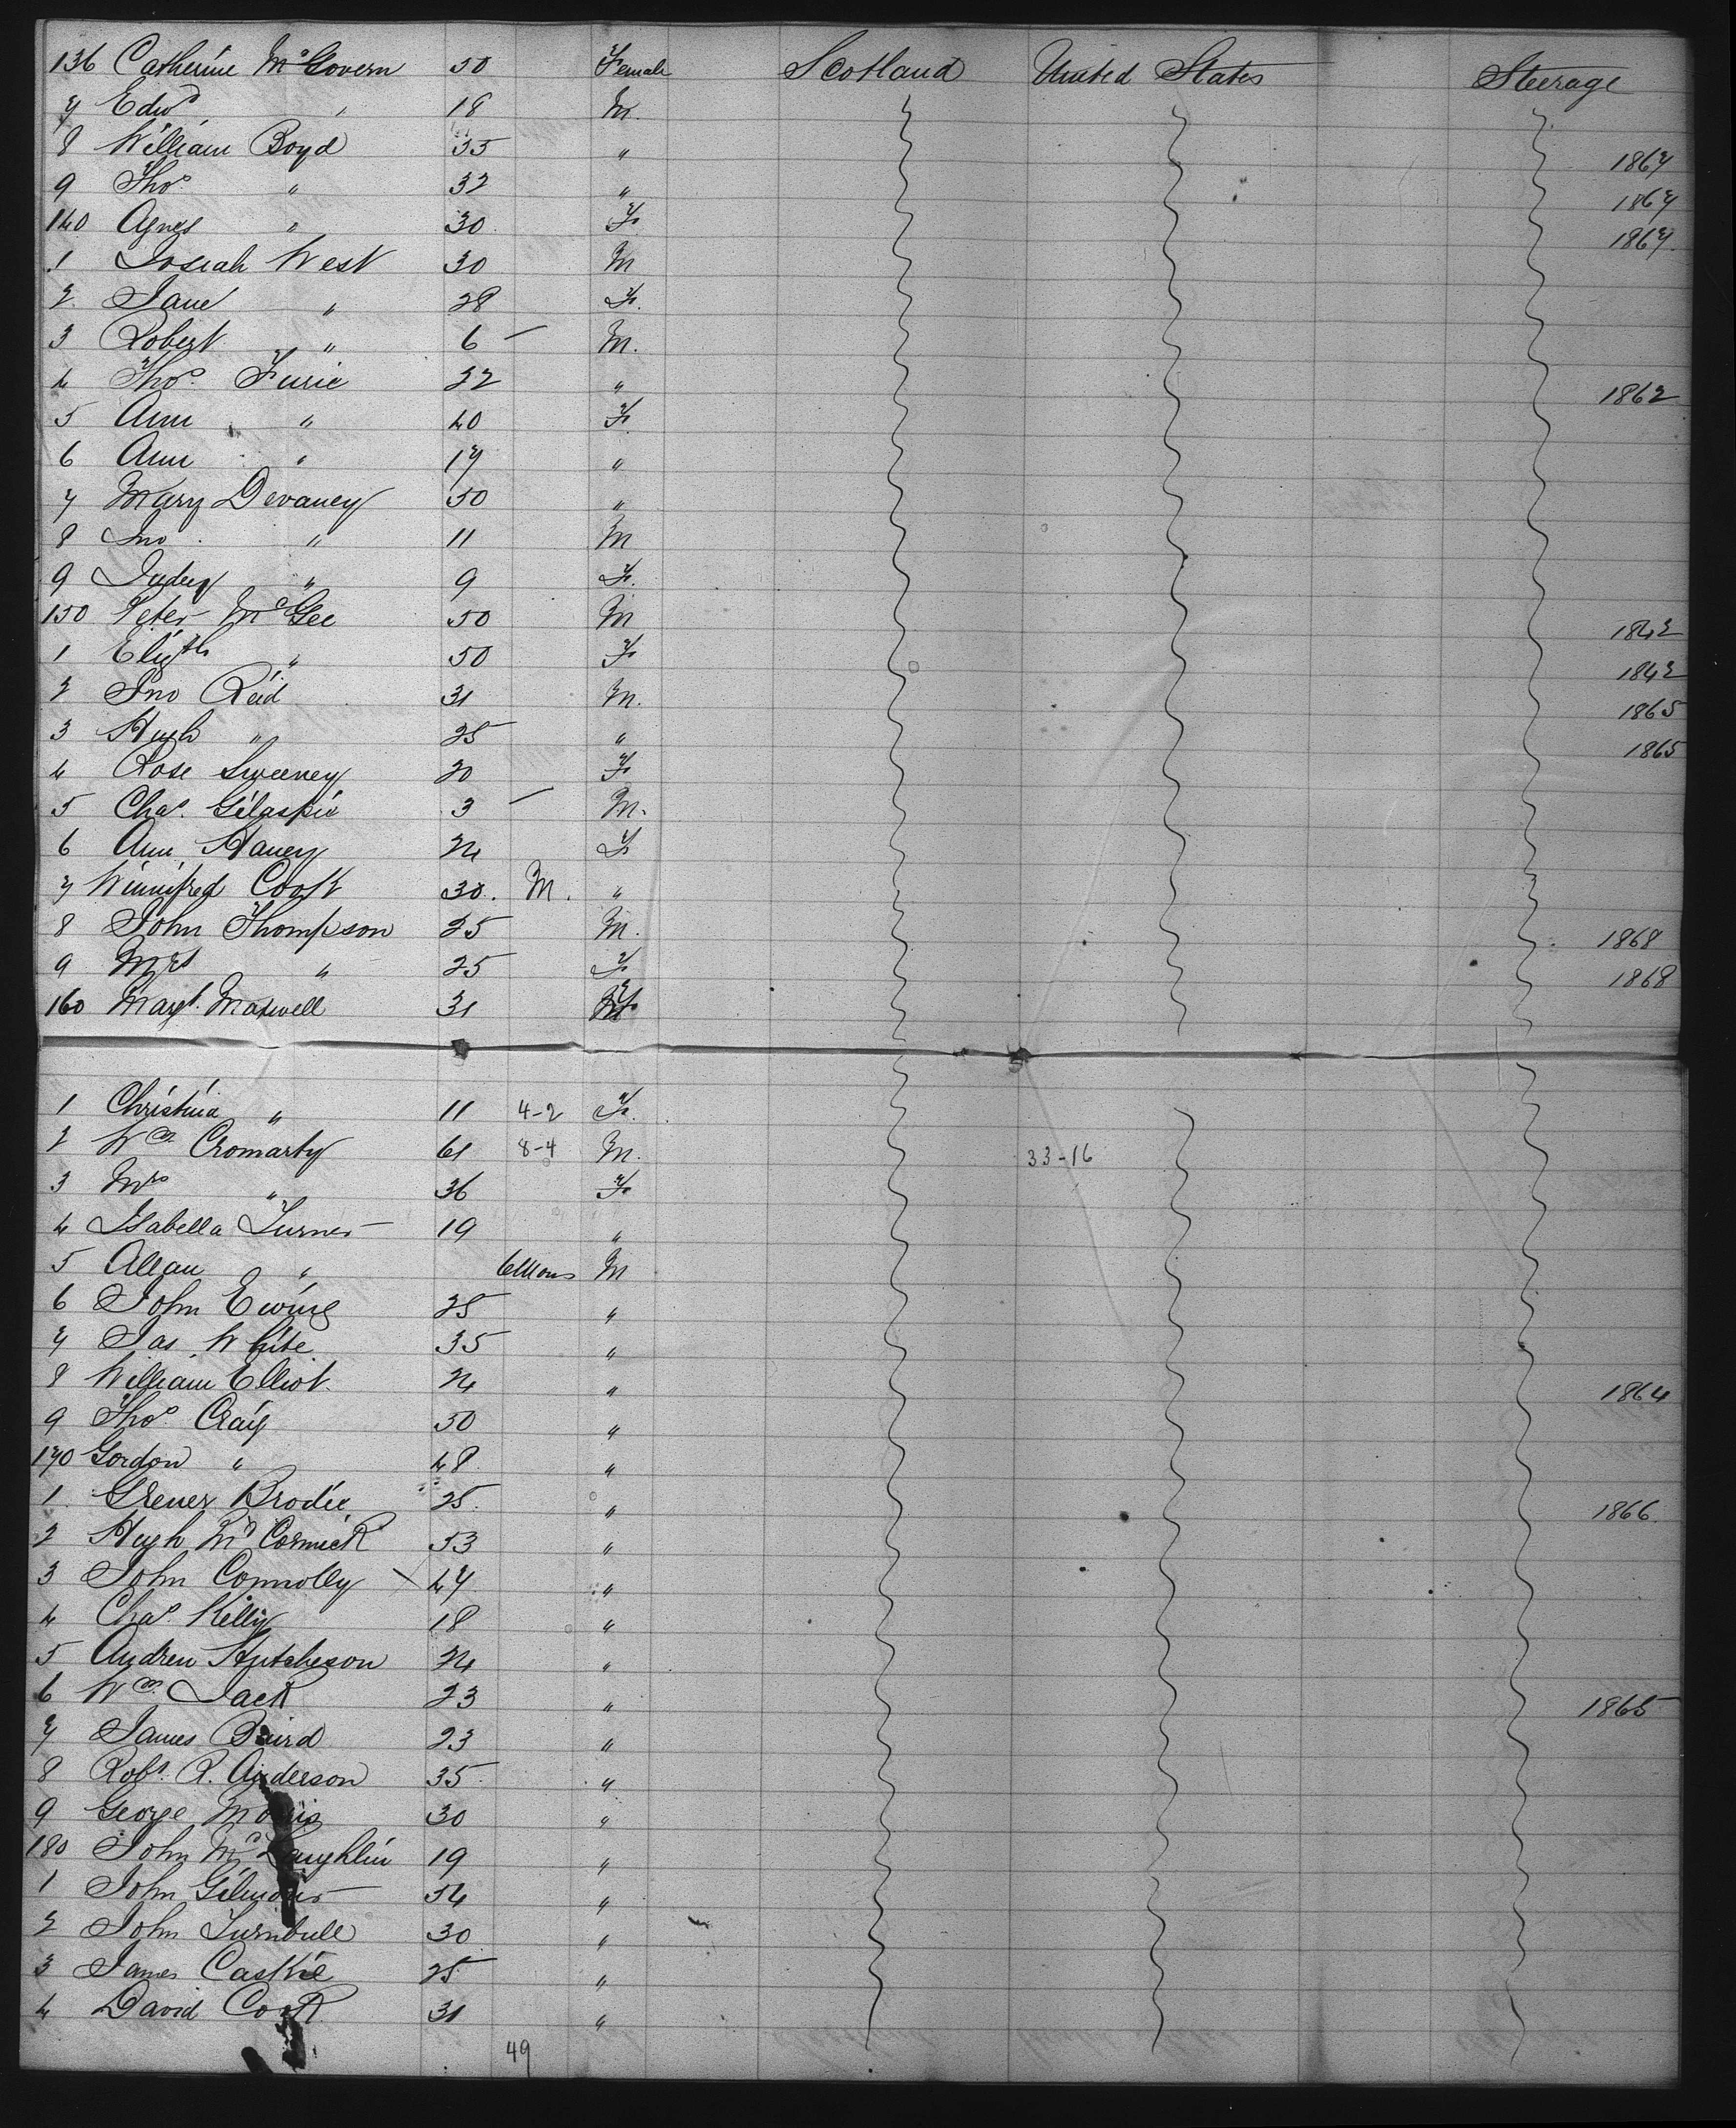 136 Catherine McGovern 50 Female Scotland United States Steerage
7 Edwd " 18 M.
8 William Boyd 35 " 1867
9 Thos " 32 " 1867
140 Agnes " 30 F 1867
1 Josiah West 30 M
2 Jane " 28 F.
3 Robert " 6 — M.
4 Thos. Furie 22 " 1862
5 Ann " 40 F.
6 Ann " 17 "
7 Mary Devaney 50 "
8 Jno " 11 M
9 Judey " 9 F.
150 Peter McGee 50 M 1842
1 Elizth " 50 F 1842
2 Jno Reid 31 M. 1865
3 Hugh " 25 " 1865
4 Rose Sweeney 20 F
5 Chas. Gilaspie 3 — M.
6 Ann Haney 24 F
7 Winnifred Cook 30. M. "
8 John Thompson 25 M. 1868
9 Mrs " 25 F 1868
160 Margt. Maxwell 31 F
1 Christina " 11 4-2 F.
2 Wm Cromarty 61 8-4 M. 33-16
3 Mrs " 36 F
4 Isabella Turner 19 "
5 Allan " 6 Mons M
6 John Ewing 25 "
7 Jas White 35 "
8 William Elliot. 24 " 1864
9 Thos. Craig 50 "
170 Gordon " 48 "
1 Brodie 25. " 1866.
2 Hugh McCormick 53 "
3 John Connolly 47 "
4 Chas. Kelly 18 "
5 Andrew Hutcheson 24 "
6 Wm. Jack 23 " 1865
7 James Baird 23 "
8 Robt. R. Anderson 35 "
9 George Morris 30 "
180 John McLaughlin 19 "
1 John Gilmour 54 "
2 John Turnbull 30 "
3 James Caskie 25 "
4 David Cook 31 "
49